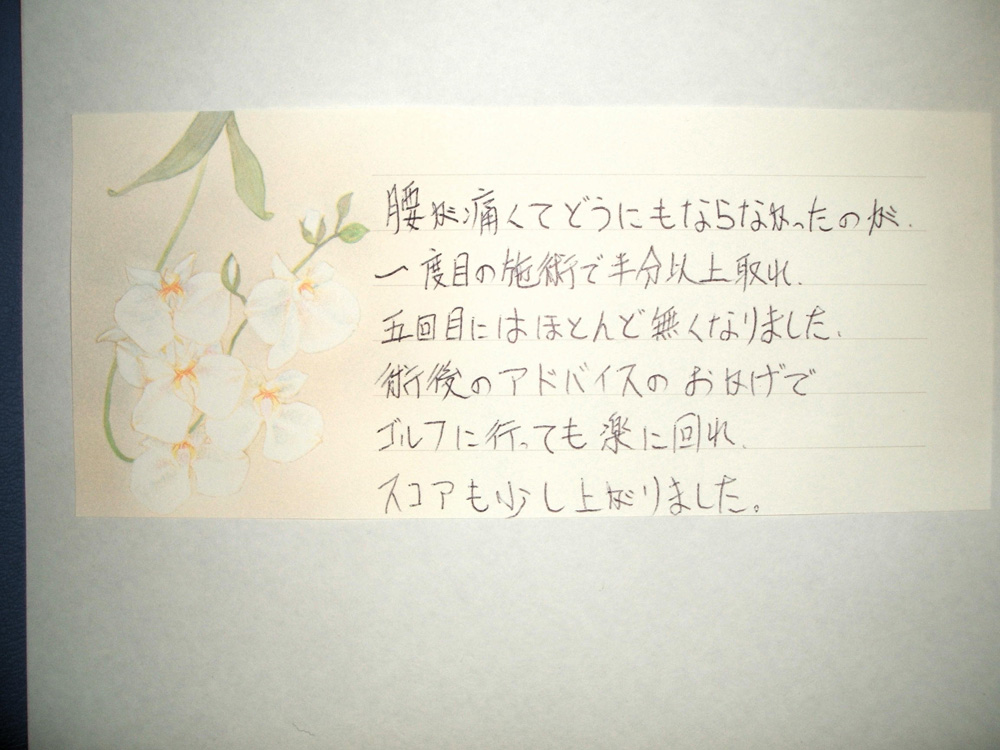 腰が痛くてどうにもならなかったのが、
一度目の施術で半分以上取れ、
五回目にはほとんど無くなりました。
術後のアドバイスのおかげで
ゴルフに行っても楽に回れ、
スコアも少し上がりました。